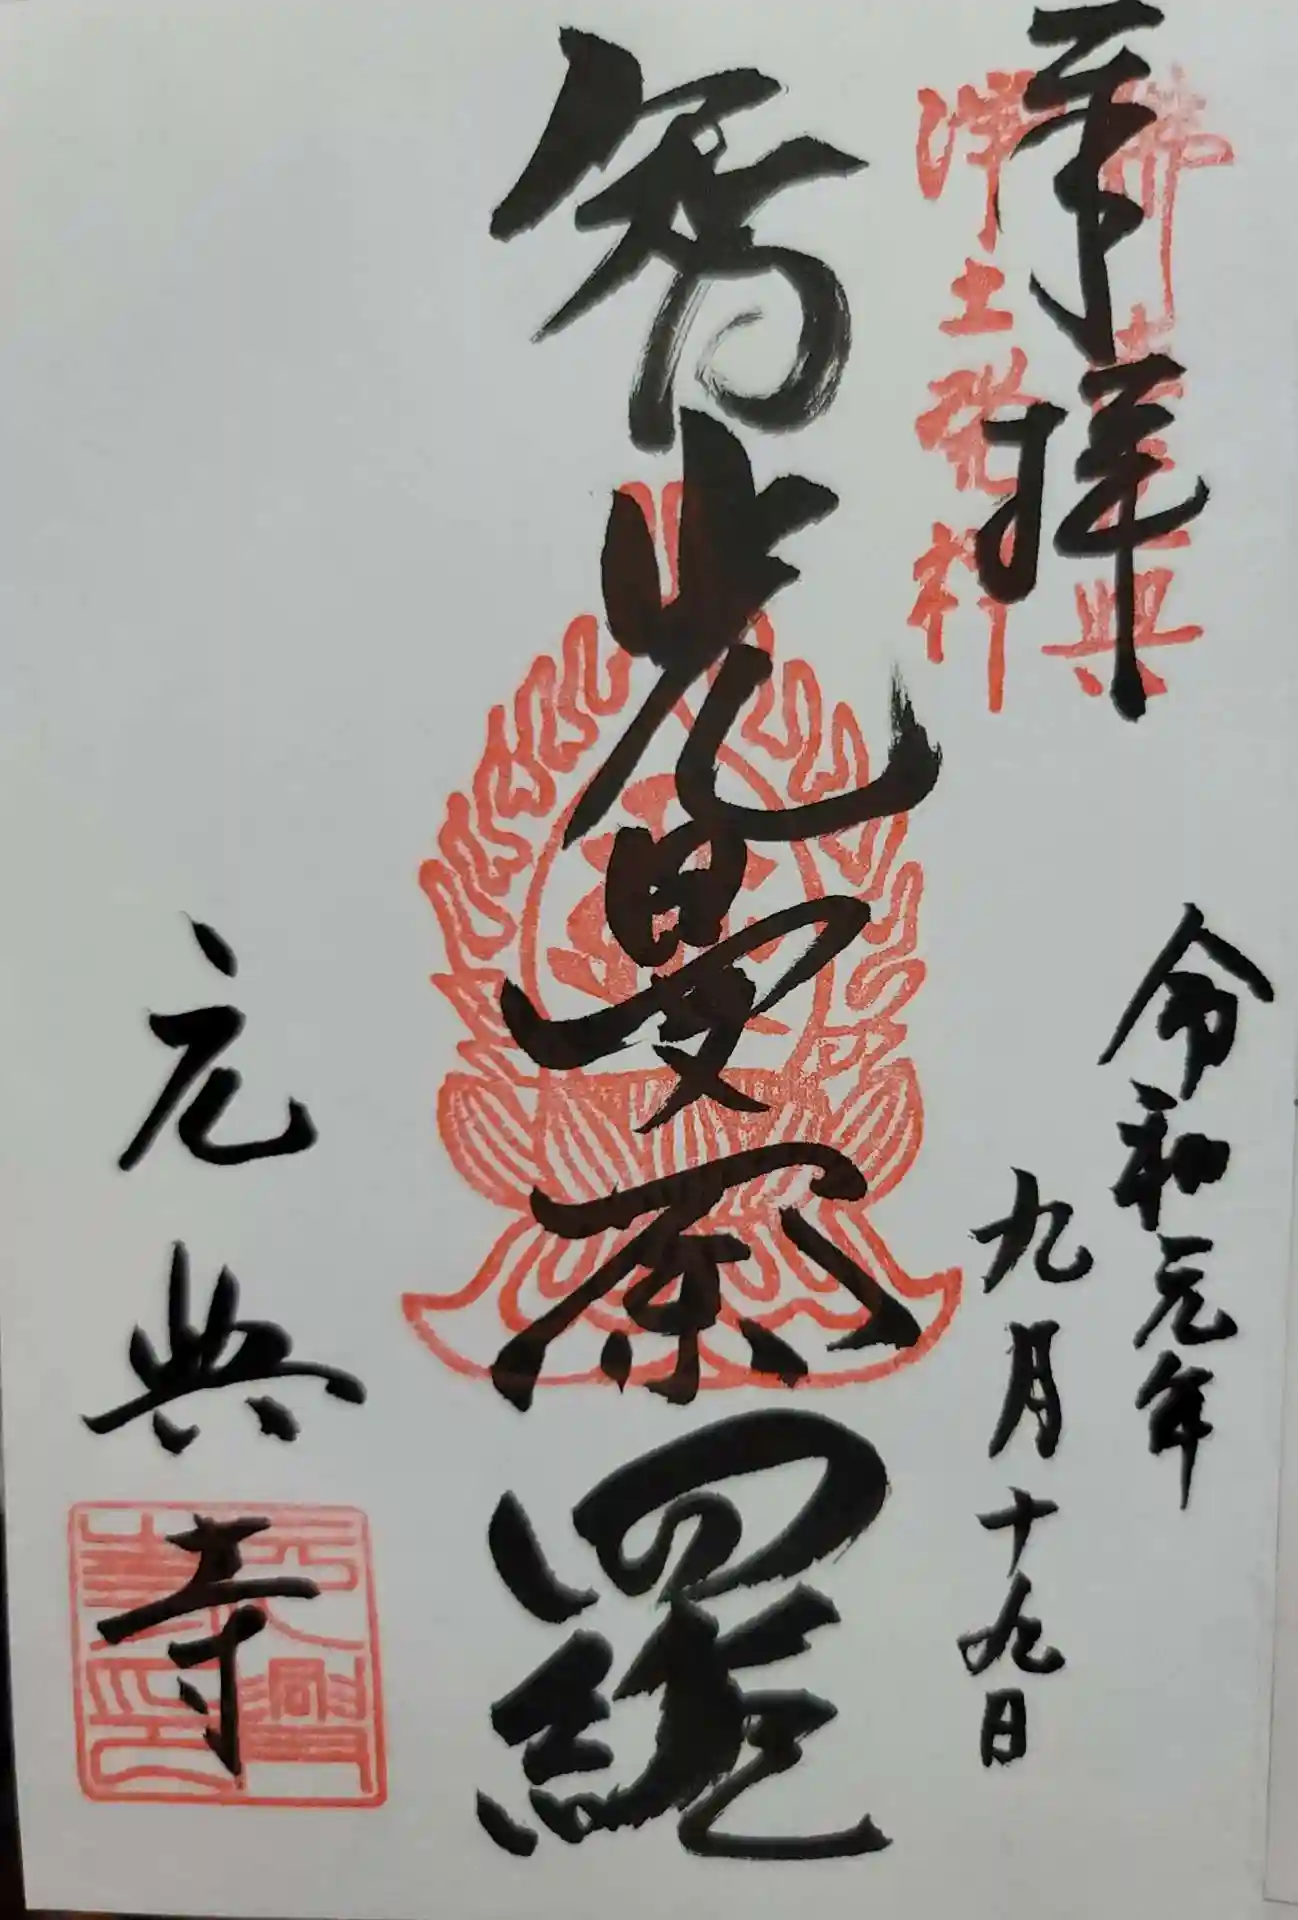 奉拝
令和元年
九月十九日
智光曼荼羅
元興寺
浄土発祥
元興寺印